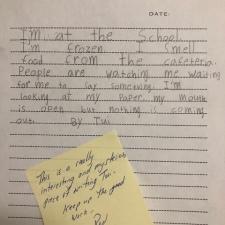 DATE:
I'm at the School.
I'm frozen. I smell
food from the cafeteria.
People are watching me waiting
for me to say something. I'm
looking at my paper. my mouth
is open but nothing is coming
out. By Tui
This is a really
interesting and mysterious
piece of writing Tui.
Keep up the good
work.